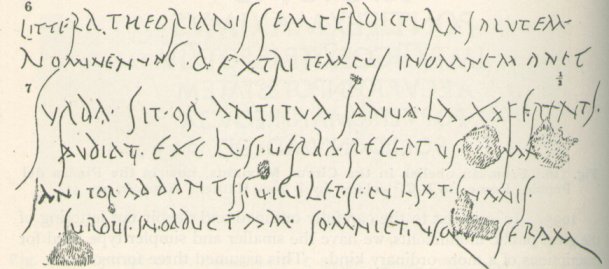 6
LITTERA.THEORIANIS SEMPER DICTVRA SALVTEM
NOMINE NVNC.DEXTRI TEMPVS IN OMNE MANET
7 ½
SVRDA.SIT.ORANTI TVA IANVA.LAXA FERENTI.
AVDIAT.EXCLVSI.VERBA RECEPTVS. AMA
IANITOR.AD DANTIS.VIGILET.SI PVLSAT.INANIS.
SVRDVS.IN OBDVCTAM.SOMNIET.VSQVE SERAM